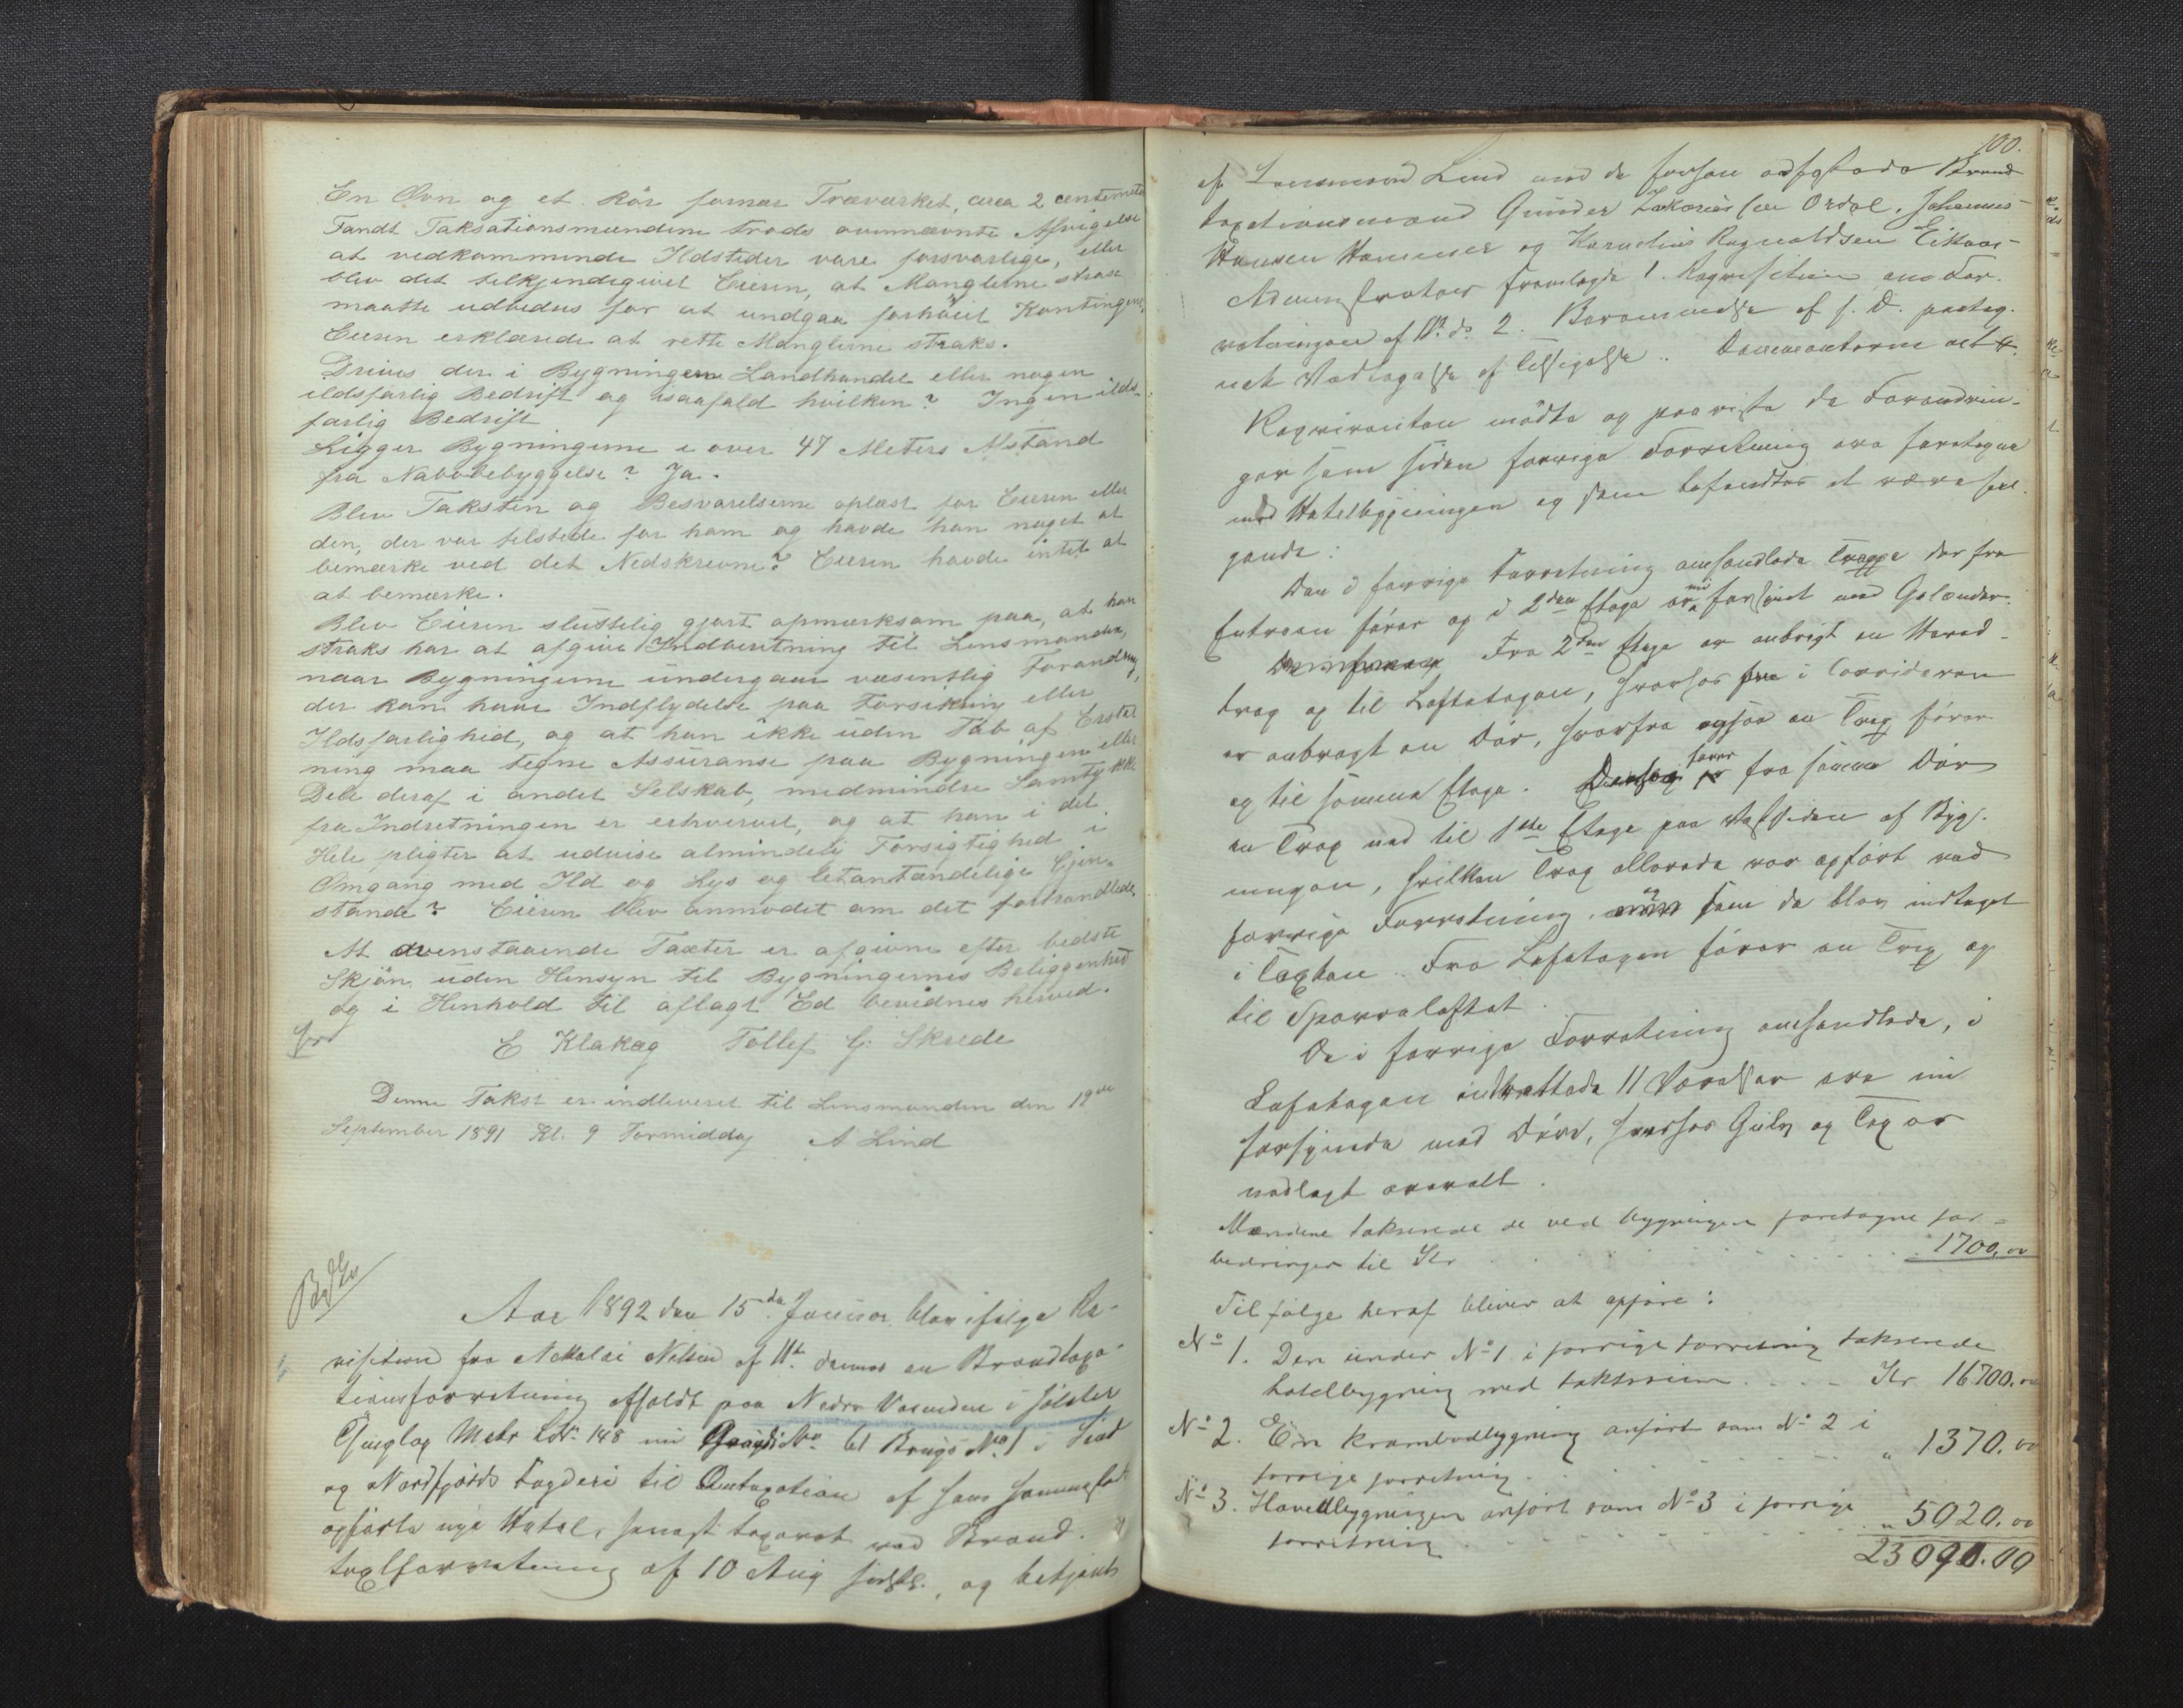 En Ovn og et Rör fornær Træværket, circa 2 centemeter
Fandt Taksationsmændene trods ovennævnte Afvigelse
at vedkommende Ildsteder vare forsvarlige, eller
blev det tilkjendegivet Eieren, at Manglerne strax
maatte udbedres for at undgaa forhöiet Kontingent,
Eieren erklærede at rette Manglerne straks.
Drives der i Bygningerne Landhandel eller nogen
ildsfarlig Bedrift og isaafald hvilken? Ingen ilds-
farlig Bedrift
Ligger Bygningerne i over 47 Meters Afstand
fra Nabobebyggelse? Ja.
Blev Taksten og Besvarelserne oplæst for Eieren eller
den, der var tilstede for ham og havde han noget at
bemærke ved det Nedskrevne? Eieren havde intet at
at bemærke.
Blev Eieren sluttelig gjort opmærksom paa, at han
straks har at afgive Indberetning til Lensmanden,
naar Bygningerne undergaar væsentlig Forandring,
der kan have Indflydelse paa Forsikring eller
Ildsfarlighed, og at han ikke uden Tab af Erstat
ning maa tegne Assuranse paa Bygningerne eller
Dele deraf i andet Selskab, medmindre Samtykke
fra Indretningen er erhvervet, og at han i det
Hele pligter at udvise almindelig Forsigtighed i
Omgang med Ild og Lys og letantændelige Gjen-
stande? Eieren blev anmodet om det forhandlede.
At ovenstaaende Taxter er afgivne efter bedste
Skjön uden Hensyn til Bygningernes Beliggenhed
og i Henhold til aflagt Ed bevidnes herved.
E Klakæg Tollef G. Skrede
Denne Takst er indleveret til Lensmanden den 19de
September 1891 Kl. 9 Formiddag A Lind
Aar 1892 den 15de Januar blev ifølge Re-
risition fra Nikolai Nilsen af 11te dennes en Brandtaxa-
tionsforretning afholdt paa Nedre Vasenden i Jølster
Thinglag Matr Lobr. 148 nu Gaards No 61 Brugs No 1 i Sønd
og Nordfjords Fogderi til Omtaxation af hans sammesteds
opførte nye Hotel, senest taxeret ved Brand-
taxtforretning af 10 Aug sidstl., og betjent
100.
af Lensmand Lind med de forhen opnævnte Brand
taxationsmænd Gunder Zakariassen Ordal, Johannes
Hansen Hammer og Kornelius Ragnvaldsen Eikaas-
Administrator fremlagde 1. Reqvisition om For-
retningen af 11te ds 2. Berammelse af s. D. paateg-
net Vedtagelse af Tilsigelse. Documenterne act 
Reqvirenten mødte og paaviste de Forandrin-
ger som siden forrige Forretning ere foretagne
med Hotelbygningen og som befandtes at være føl-
gende:
Den i forrige Forretning omhandlede Trappe der fra
Entreen fører op i 2den Etage er nu forsynet med Gelænder.
Fra 2den Etage er anbragt en Hoved-
trap op til Loftetagen, hvorhos i Corridoren
er anbragt en Dør, hvorfra ogsaa en Trap fører
op til samme Etage. fører fra samme Dør
en Trap ned til 1ste Etage paa Vestsiden af Byg-
ningen, hvilken Trap allerede var opført ved
forrige Forretning, og som da blev indtaget
i Taxten. Fra Loftetagen fører en Trap op
til Sperreloftet.
De i forrige Forretning omhandlede, i
Loftetagen indrettede 11 Værelser ere nu
forsynede med Døre, hvorhos Gulv og Tag er
nedlagt overalt.
Mændene takserede de ved bygningen foretagne for-
bedringer til Kr . . . . 1700,00
Til følge heraf bliver at opføre:
No 1. Den under No 1 i forrige forretning takserede
hotelbygning med takstsum . . . . Kr 16700.00
No 2. En krambodbygning anført som No 2 i
forrige forretning . . . . " 1370.00
No 3. Hovedbygningen anført som No 3 i forrige
forretning . . . . " 5020.00
23090.00